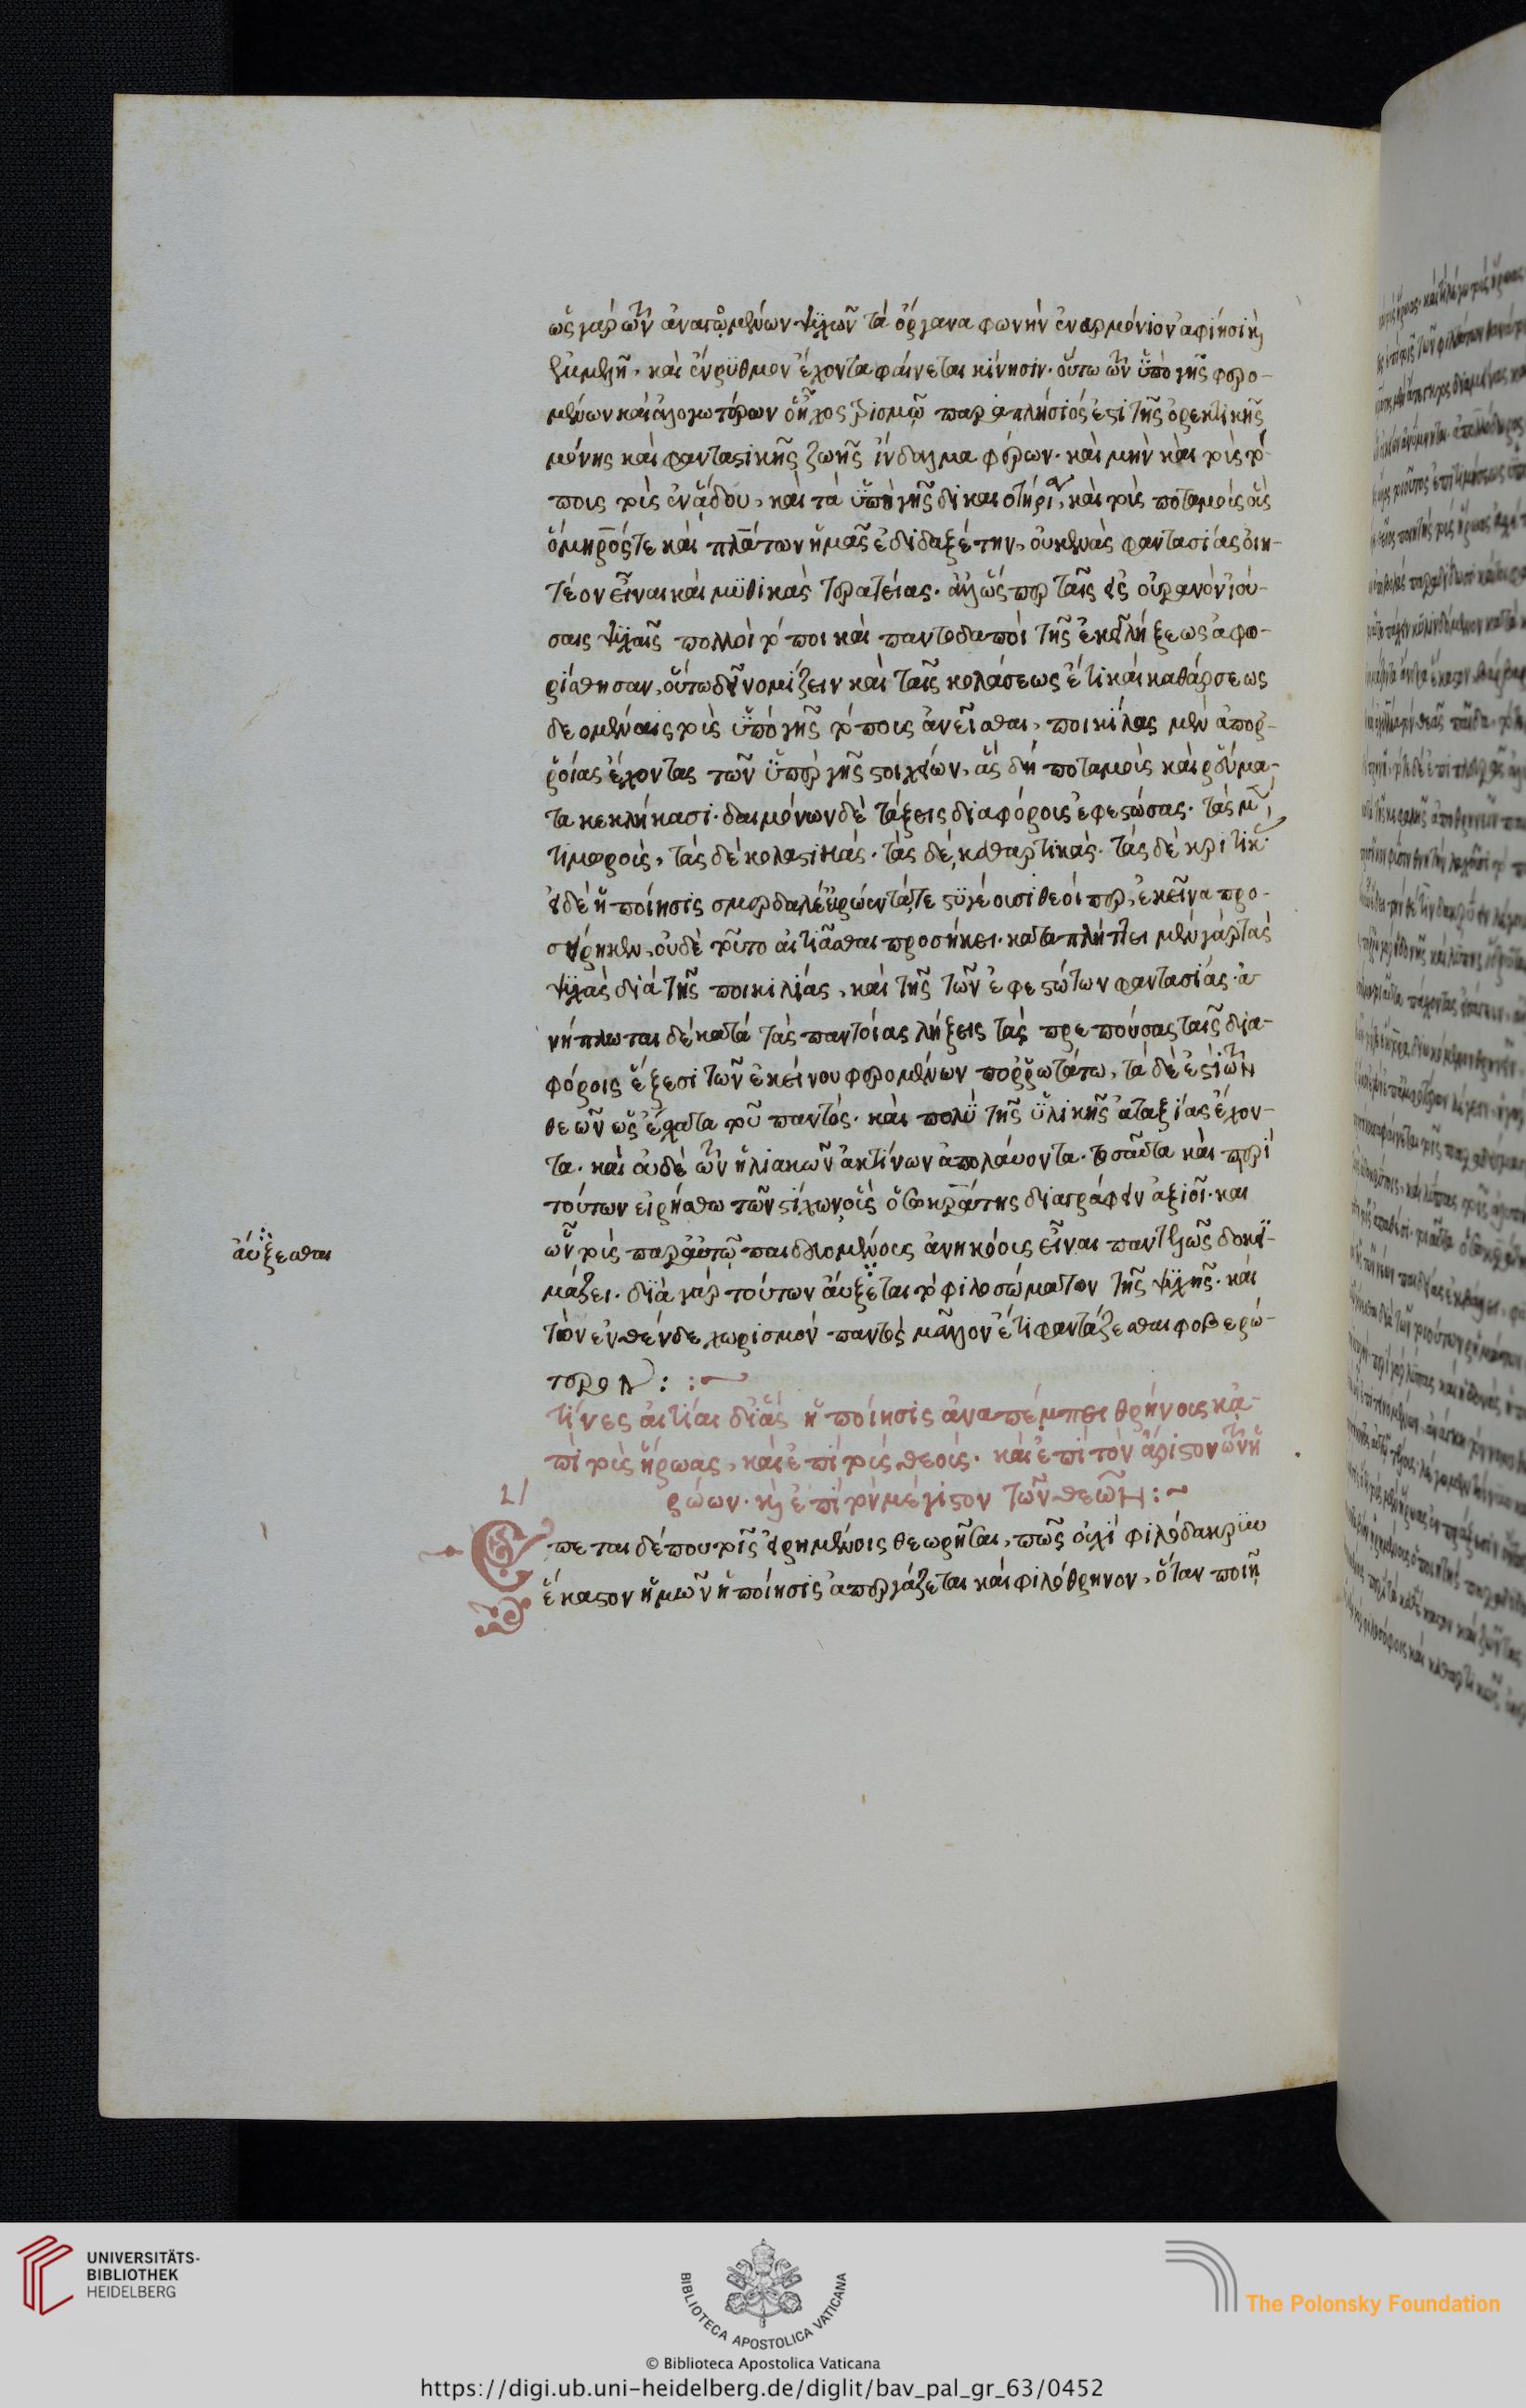 ὡς γὰρ τῶν ἀναγομένων ψυχῶν τὰ ὄργανα φωνὴν ἐναρμόνιον ἀφίησι καὶ
ἐμμελῆ, καὶ ἔνρυθμον ἔχοντα φαίνεται κίνησιν· οὕτω τῶν ὑπὸ γῆς φερο-
μένων καὶ ἀλογωτέρων ὁ ἦχος τρισμῷ παραπλήσιός ἐστι τῆς ὀρεκτικῆς
μόνης καὶ φανταστικῆς ζωῆς ἴνδαλμα φέρων· καὶ μὴν καὶ τοὺς τό-
πους τοὺς ἐν ἅδου, καὶ τὰ ὑπὸ γῆς δικαστήρια, καὶ τοὺς ποταμοὺς οὓς
ὅμηρός τε καὶ πλάτων ἡμᾶς ἐδιδαξέτην, οὐ κενὰς φαντασίας οἰη-
τέον εἶναι καὶ μυθικὰς τερατείας· ἀλλ' ὥσπερ ταῖς εἰς οὐρανὸν ἰού-
σαις ψυχαῖς πολλοὶ τόποι καὶ παντοδαποὶ τῆς ἐκεῖ λήξεως ἀφω-
ρίσθησαν, οὕτω δεῖ νομίζειν καὶ ταῖς κολάσεως ἔτι καὶ καθάρσεως
δεομέναις τοὺς ὑπὸ γῆς τόπους ἀνεῖσθαι, ποικίλας μὲν ἀπορ-
ροίας ἔχοντας τῶν ὑπὲρ γῆς στοιχείων, ἃς δὴ ποταμοὺς καὶ ῥεύμα-
τα κεκλήκασι· δαιμόνων δὲ τάξεις διαφόρους ἐφεστώσας· τὰς μὲν
τιμωροὺς, τὰς δὲ κολαστικάς· τὰς δὲ καθαρτικάς· τὰς δὲ κριτικ
εἰ δὲ ἡ ποίησις σμερδαλέ εὐρώεντά τε στυγέουσι θεοί περ, ἐκεῖνα προ-
σείρηκεν, οὐδὲ τοῦτο αἰτιᾶσθαι προσήκει· καταπλήττει μὲν γὰρ τὰς
ψυχὰς διὰ τῆς ποικιλίας, καὶ τῆς τῶν ἐφεστώτων φαντασίας· ἀ
νήπλωται δὲ κατὰ τὰς παντοίας λήξεις τὰς πρεπούσας ταῖς δια-
φόροις ἕξεσι τῶν ἐκείνου φερομένων πορρωτάτω, τὰ δὲ ἐστὶ τῶν
θεῶν ὡς ἔσχατα τοῦ παντός· καὶ πολὺ τῆς ὑλικῆς ἀταξίας ἔχον-
τα· καὶ οὐδὲ τῶν ἡλιακῶν ἀκτίνων ἀπολάυοντα· τοσαῦτα καὶ περὶ
τούτων εἰρήσθω τῶν στίχων οὓς ὁ σωκράτης διαγράφειν ἀξιοῖ· και
ὧν τοὺς παρ' αὐτῷ παιδευομένους ἀνηκόους εἶναι παντελῶς δοκι-
μάζει· διὰ γὰρ τούτων ἀύξεται τὸ φιλοσώματον τῆς ψυχῆς· καὶ
τὸν ἐνθένδε χωρισμόν παντὸς μᾶλλον ἔτι φαντάζεσθαι φοβερώ-
τερον : :~
ἀύξεσθαι
Τίνες αἰτίαι δι' ἃς ἡ ποίησις ἀναπέμπει θρήνους κἀ-
πὶ τοὺς ἥρωας, καὶ ἐπὶ τοὺς θεούς· καὶ ἐπὶ τὸν ἄριστον τῶν ἡ
ρώων· καὶ ἐπὶ τὸν μέγιστον τῶν θεῶν :~
Ἕπεται δέ που τοῖς εἰρημένοις θεωρῆσαι, πῶς οὐχὶ φιλόδακρυν
ἕκαστον ἡμῶν ἡ ποίησις ἀπεργάζεται καὶ φιλόθρηνον, ὅταν ποιῇ
UNIVERSITÄTS-
BIBLIOTHEK
HEIDELBERG
BIBLIOTECA APOSTOLICA VATICANA
The Polonsky Foundation
© Biblioteca Apostolica Vaticana
https://digi.ub.uni-heidelberg.de/diglit/bav_pal_gr_63/0452